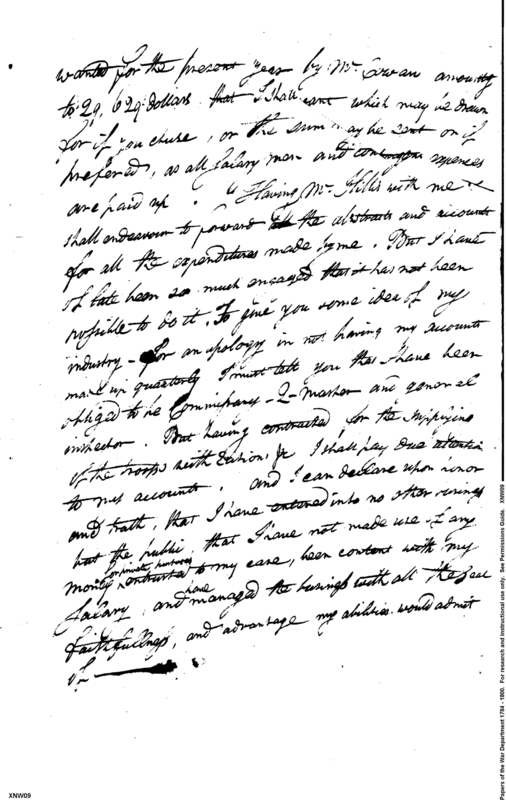 wanted for the present year by Mr. Cowan amounting
to 29,629 dollars that I shall want which may be drawn
for if you chuse, or the sum may be sent on if
preferred, as all salary men and expences
are paid up. Having Mr. Hills with me I
shall endeavour to forward all the abstracts and accounts
for all the expenditures made by me. But I have
of late been so much engaged that it has not been
possible to do it. To give you some idea of my
industry - for an apology in not having my accounts
made up quarterly I must tell you that I have been
obliged to be Commissary - Q - Master and general
inspector. But having contracted for the supplying
of the troops with Rations, I shall pay due attention
to my accounts, and I can declare upon honor
and truth, that I have entered into no other business
but the public, that I have not made use of any
money for private business entrusted to my care, been content with my
salary, and have managed the business with all the zeal
faithfullness, and advantage my abilities would admit
of
Papers of the War Department 1784 - 1800. For research and instructional use only. See Permissions Guide. XNW09
XNW09